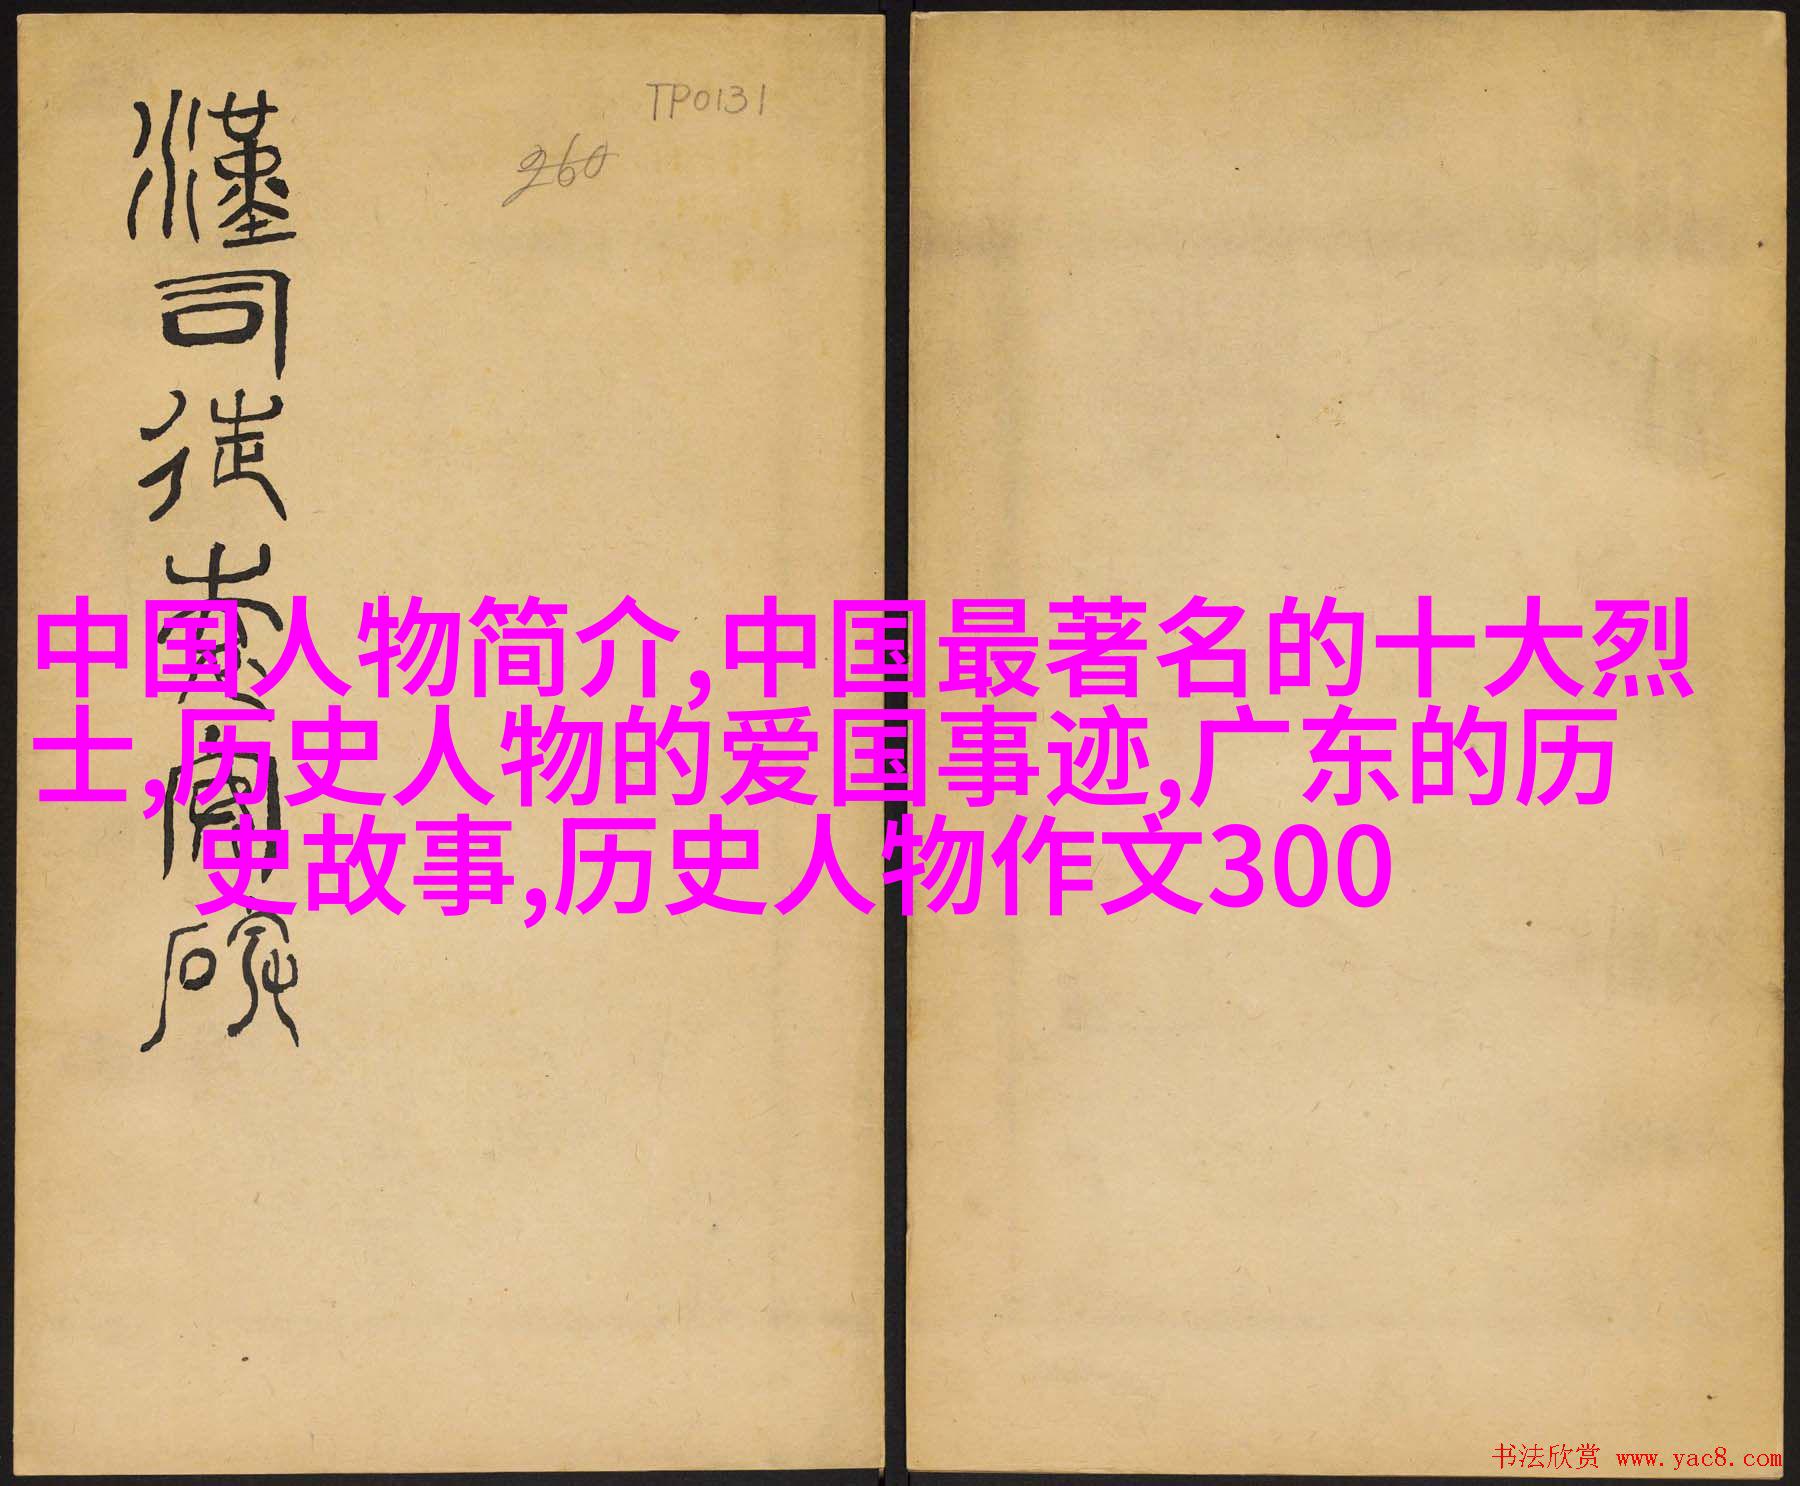 TP0131
260
漢司徒袁安碑
中国人物简介,中国最著名的十大烈
士,历史人物的爱国事迹,广东的历
史故事,历史人物作文300
书法欣赏 www.yac8.com